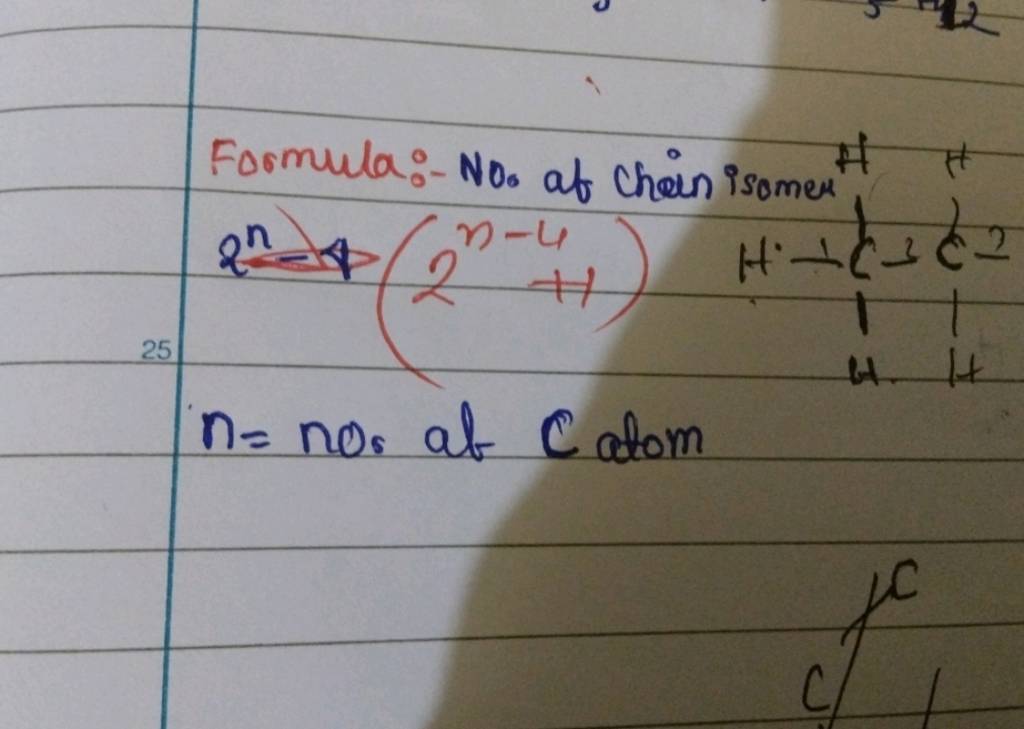 5 H12
Formula:- No. of Chain isomer
2^n - 1 (2^n-4 +1)
25
n = no. of C atom
H H
H - C - C -
H H
C
C